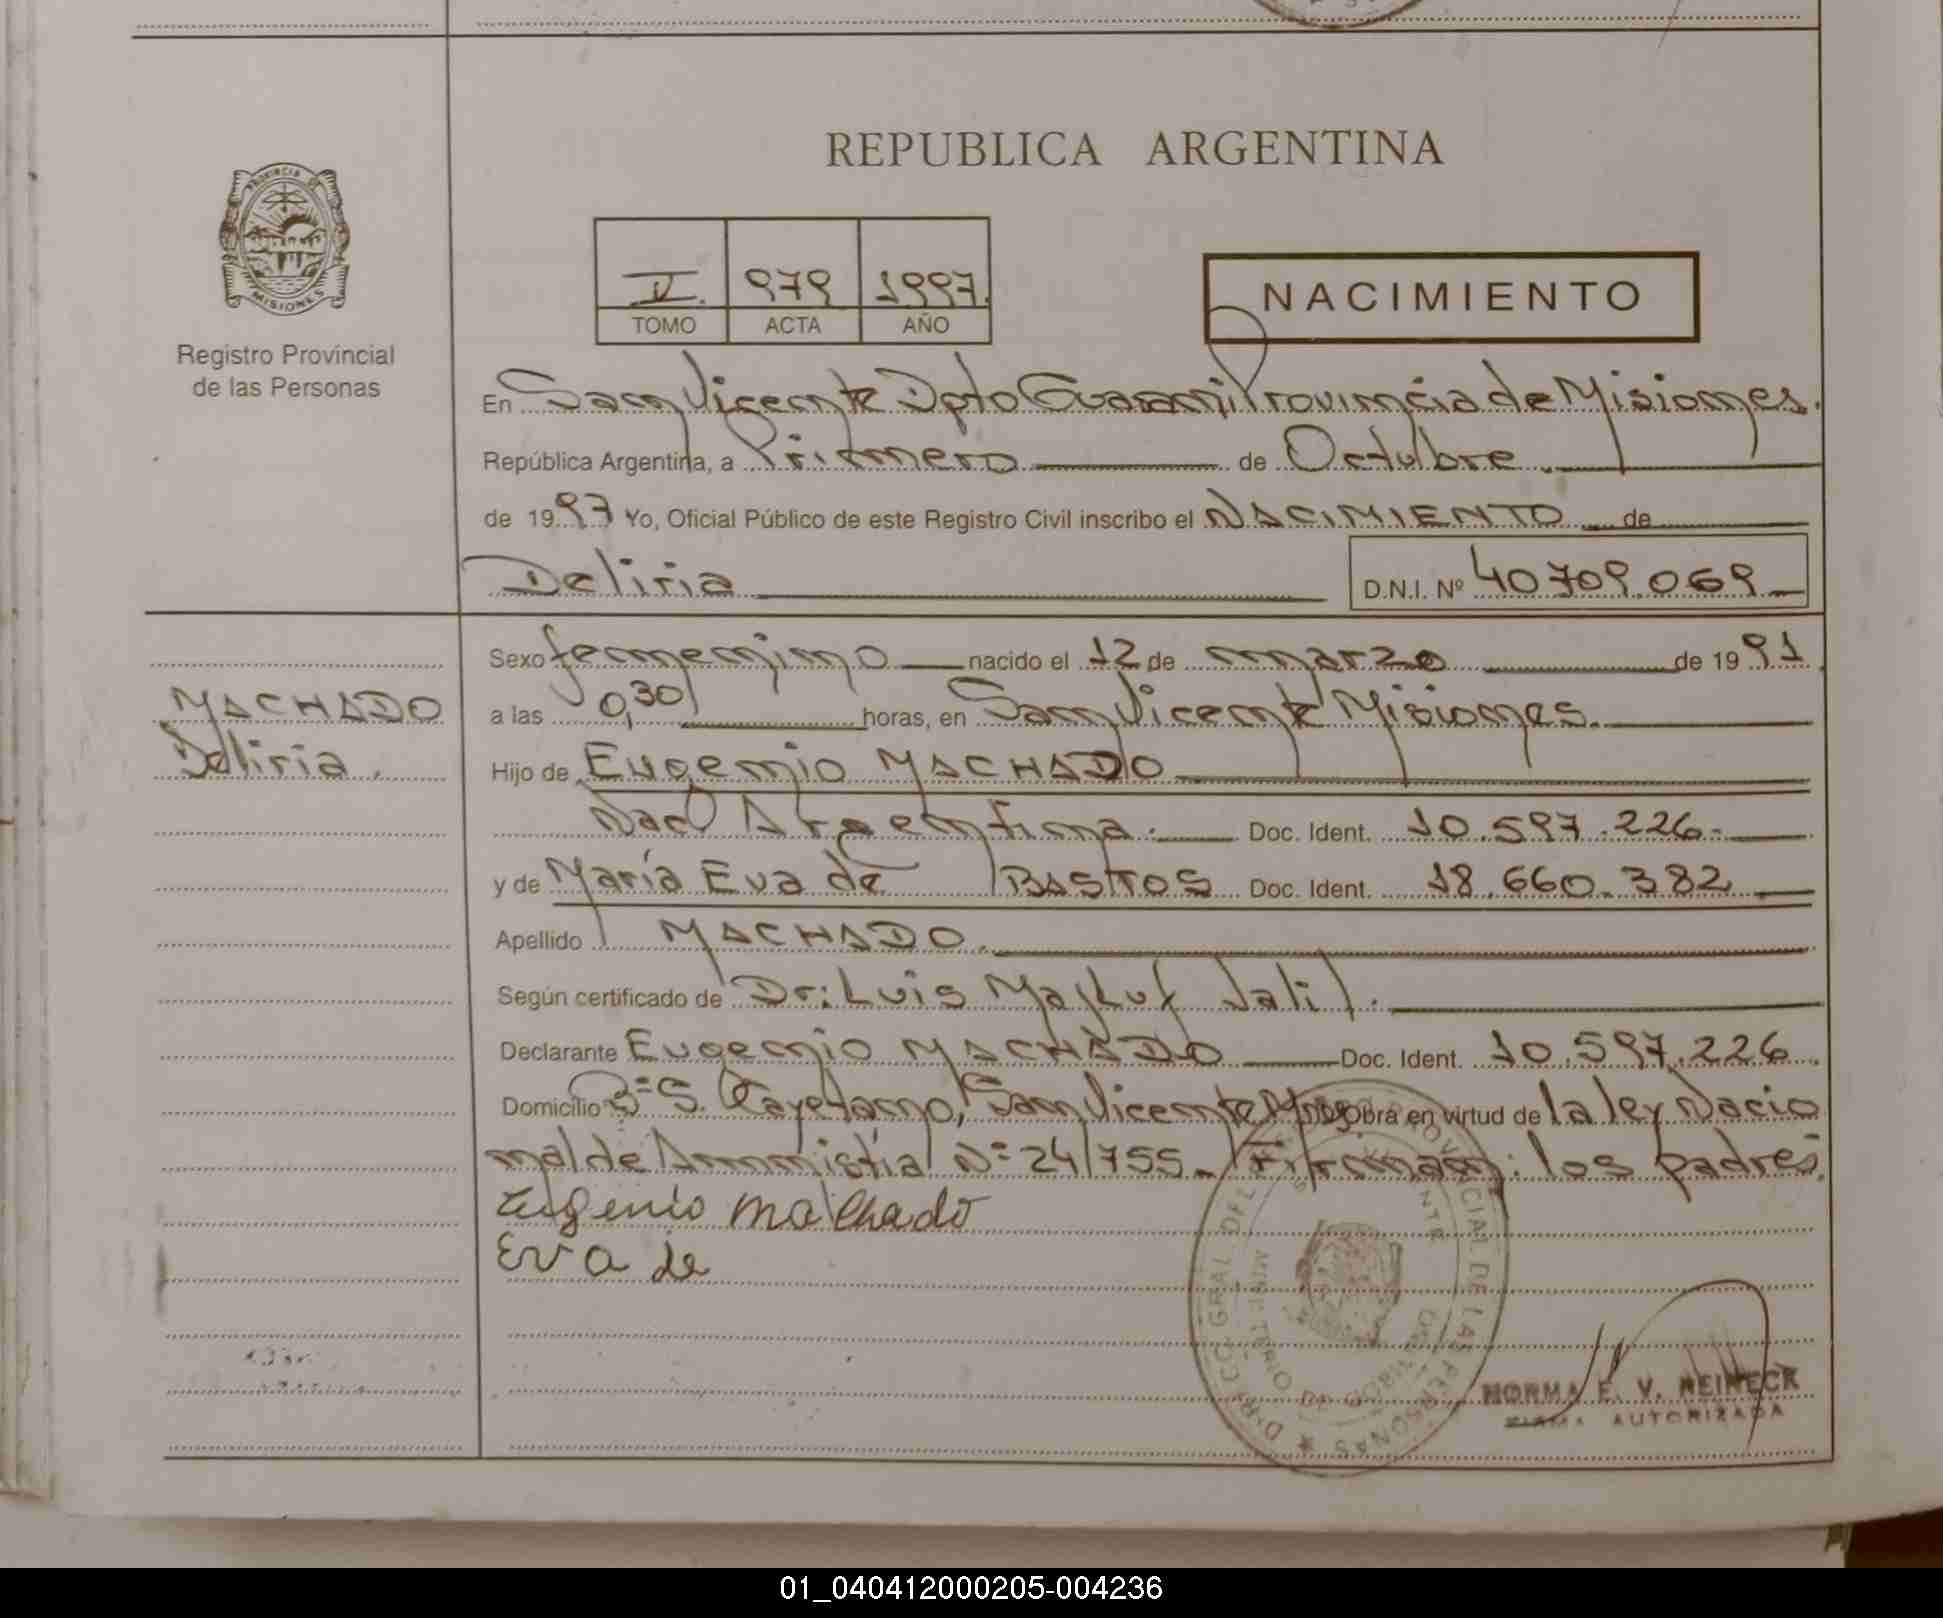 REPUBLICA ARGENTINA
PROVINCIA DE
MISIONES
Registro Provincial
de las Personas
V. 979 1997.
TOMO ACTA AÑO
NACIMIENTO
En San Vicente Dpto Guaraní Provincia de Misiones.
República Argentina, a Primero de Octubre.
de 1997 Yo, Oficial Público de este Registro Civil inscribo el NACIMIENTO de
Deliria D.N.I. Nº 40709.069
Sexo femenino nacido el 12 de marzo de 1991
MACHADO
Deliria.
a las 0,30 horas, en San Vicente Misiones.
Hijo de Eugenio MACHADO
Nac. Argentina. Doc. Ident. 10.597.226-
y de María Eva de BASTOS Doc. Ident. 18.660.382
Apellido MACHADO.
Según certificado de Dr: Luis Majluf Jalil.
Declarante Eugenio MACHADO Doc. Ident. 10.597.226
Domicilio Bº S. Cayetano, San Vicente Mnes Obra en virtud de la ley Nacio
nal de Amnistía Nº 24/755- Firman: los padres.
Eugenio Malhado
Eva de
NORMA E. V. REINECK
FIRMA AUTORIZADA
01_040412000205-004236